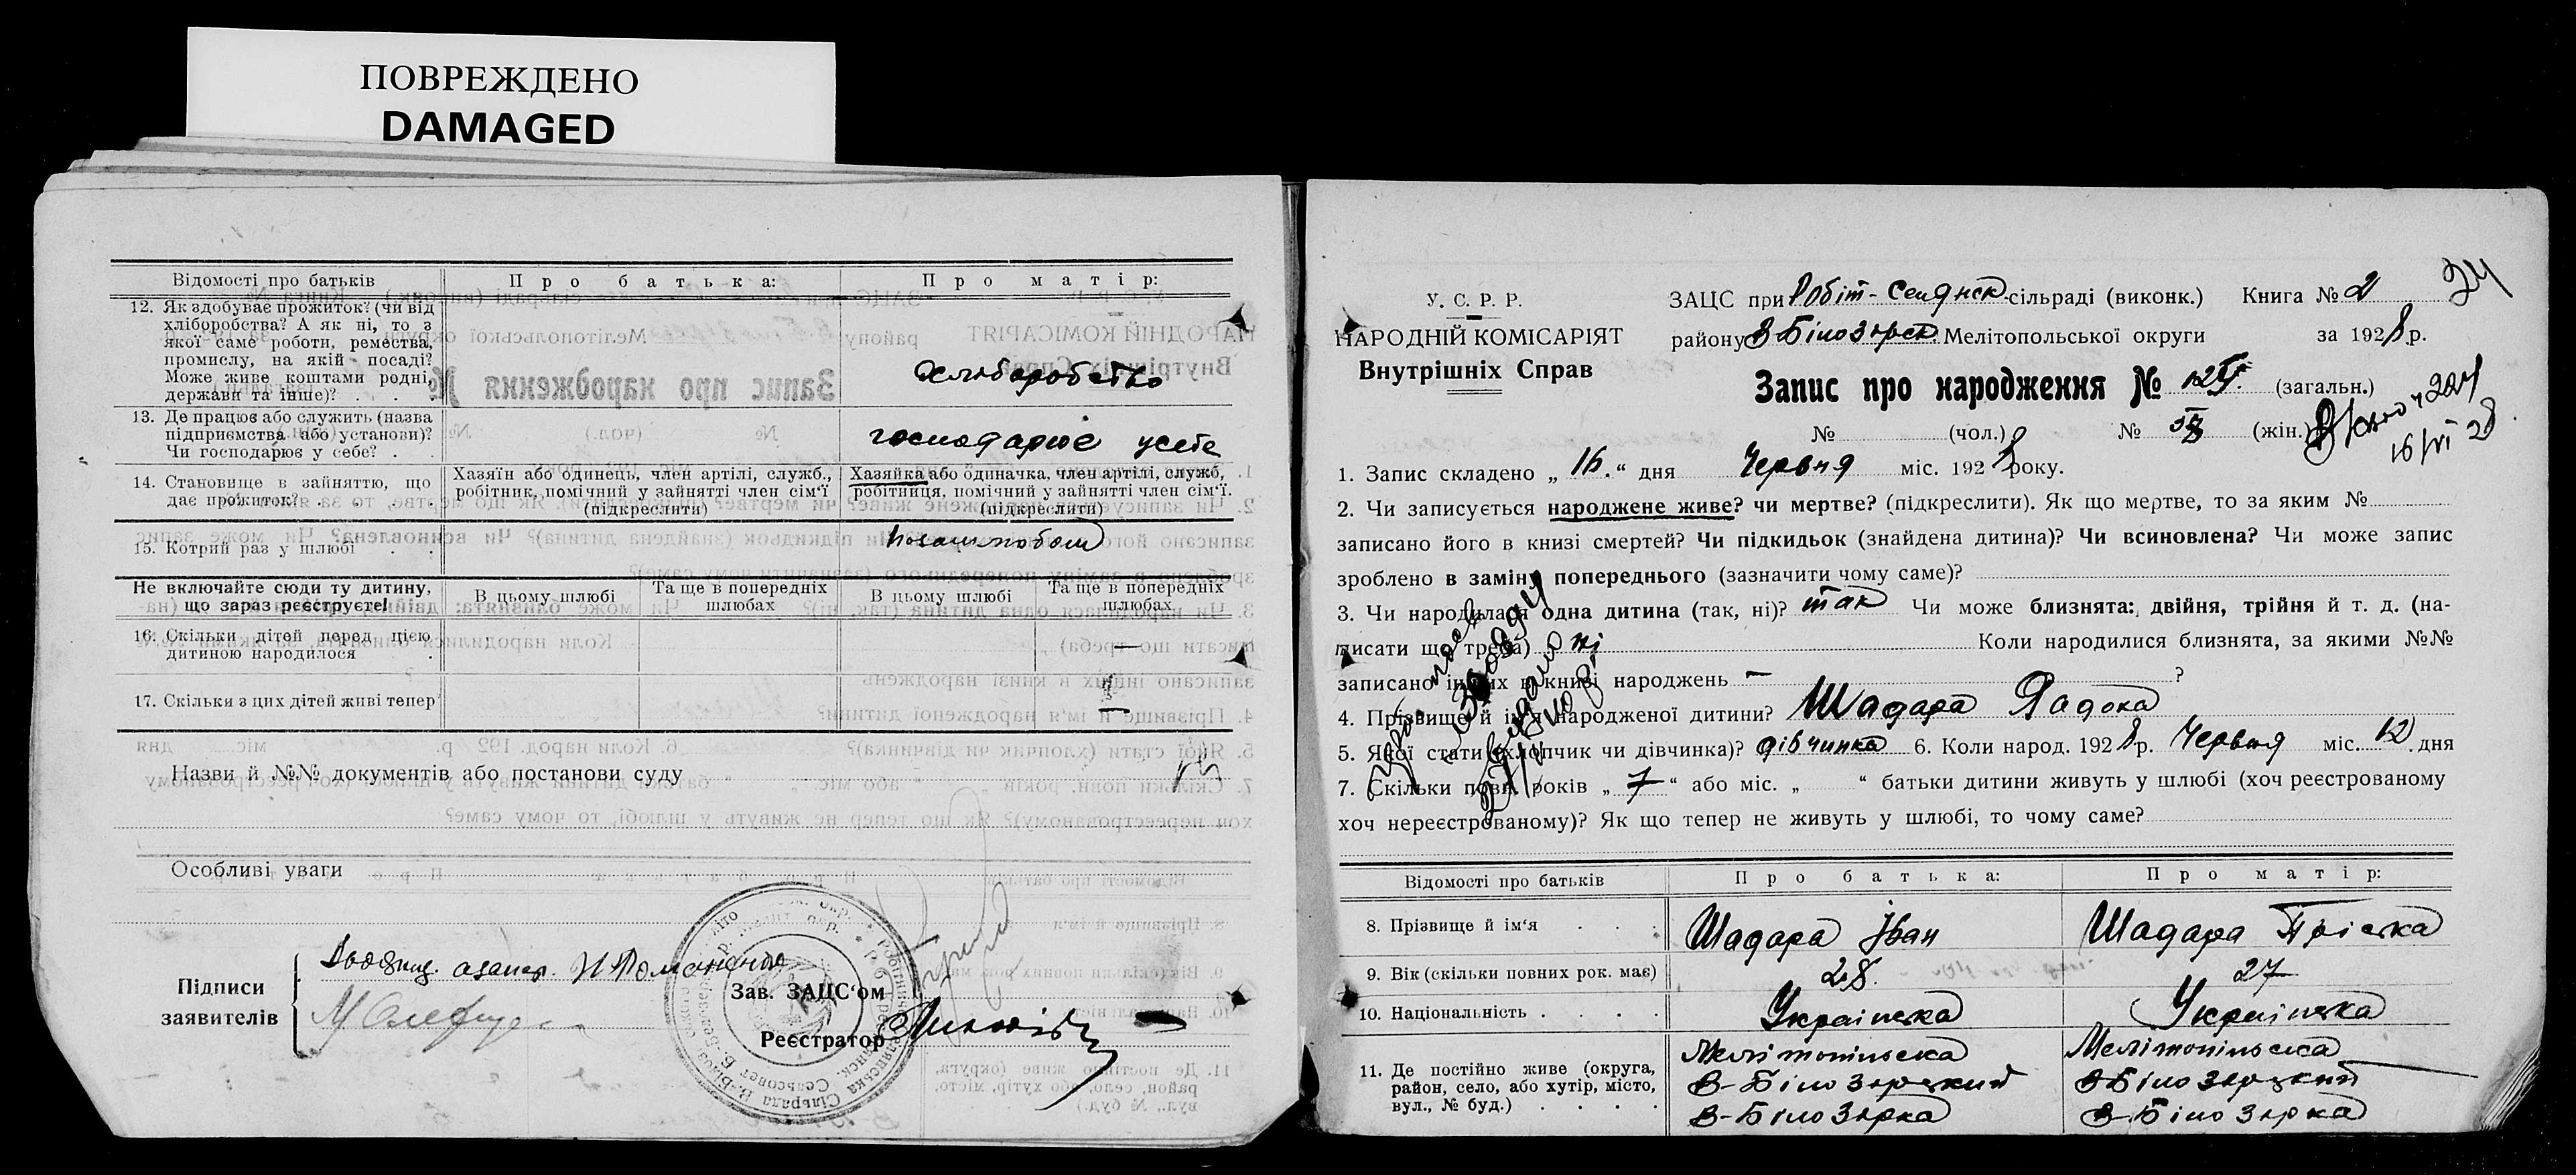 ПОВРЕЖДЕНО
DAMAGED
Відомості про батьків
Про батька:
Про матір:
12. Як здобуває прожиток? (чи від
хліборобства? А як ні, то з
якої саме роботи, ремества,
промислу, на якій посаді?
Може живе коштами родні,
держави та інше)? . . .
хлиборобство
13. Де працює або служить (назва
підприємства або установи)?
Чи господарює у себе? . .
господарює усебе
14. Становище в зайняттю, що
дає прожиток? . . . .
Хазяїн або одинець, член артілі, служб.,
робітник, помічний у зайнятті член сім'ї
(підкреслити)
Хазяйка або одиначка, член артілі, служб,
робітниця, помічний у зайнятті член сім'ї.
(підкреслити)
15. Котрий раз у шлюбі . .
Не включайте сюди ту дитину,
що зараз реєструєте!
В цьому шлюбі
Та ще в попередніх
шлюбах
В цьому шлюбі
Та ще в попередніх
шлюбах
16. Скільки дітей перед цією
дитиною народилося .
—
17. Скільки з цих дітей живі тепер?
1
Назви й №№ документів або постанови суду
Особливі уваги
Підписи
заявителів
Зав. ЗАЦС'ом
Реєстратор
24
У. С. Р. Р.
НАРОДНІЙ КОМІСАРІЯТ
Внутрішніх Справ
ЗАЦС при Робіт-Селянск. сільраді (виконк.) Книга № 2
району В-Білозірск. Мелітопольської округи за 1928 р.
Запис про народження № (загальн.)
№ (чол.) № (жін.)
16/VI 28
1. Запис складено „ 16. " дня Червня міс. 1928 року.
2. Чи записується народжене живе? чи мертве? (підкреслити). Як що мертве, то за яким №
записано його в книзі смертей? Чи підкидьок (знайдена дитина)? Чи всиновлена? Чи може запис
зроблено в заміну попереднього (зазначити чому саме)?
3. Чи народилася одна дитина (так, ні)? так Чи може близнята: двійня, трійня й т. д. (на-
писати що треба) ні Коли народилися близнята, за якими №№
записано інших в книзі народжень — ?
4. Прізвище й ім'я народженої дитини? Шадара
5. Якої стати (хлопчик чи дівчинка)? дівчинка 6. Коли народ. 1928 р. Червня міс. 12 дня
7. Скільки повн. років „ 7 " або міс. „ " батьки дитини живуть у шлюбі (хоч реєстрованому
хоч нереєстрованому)? Як що тепер не живуть у шлюбі, то чому саме?
Відомості про батьків
Про батька:
Про матір:
8. Прізвище й ім'я . . .
Шадара Іван
Шадара Пріська
9. Вік (скільки повних рок. має)
28.
27
10. Національність . . . .
Українська
Українська
11. Де постійно живе (округа,
район, село, або хутір, місто,
вул., № буд.) . . . .
Мелітопільска
В-Білозірский
В-Білозірка
Мелітопільська
В-Білозірский
В-Білозірка